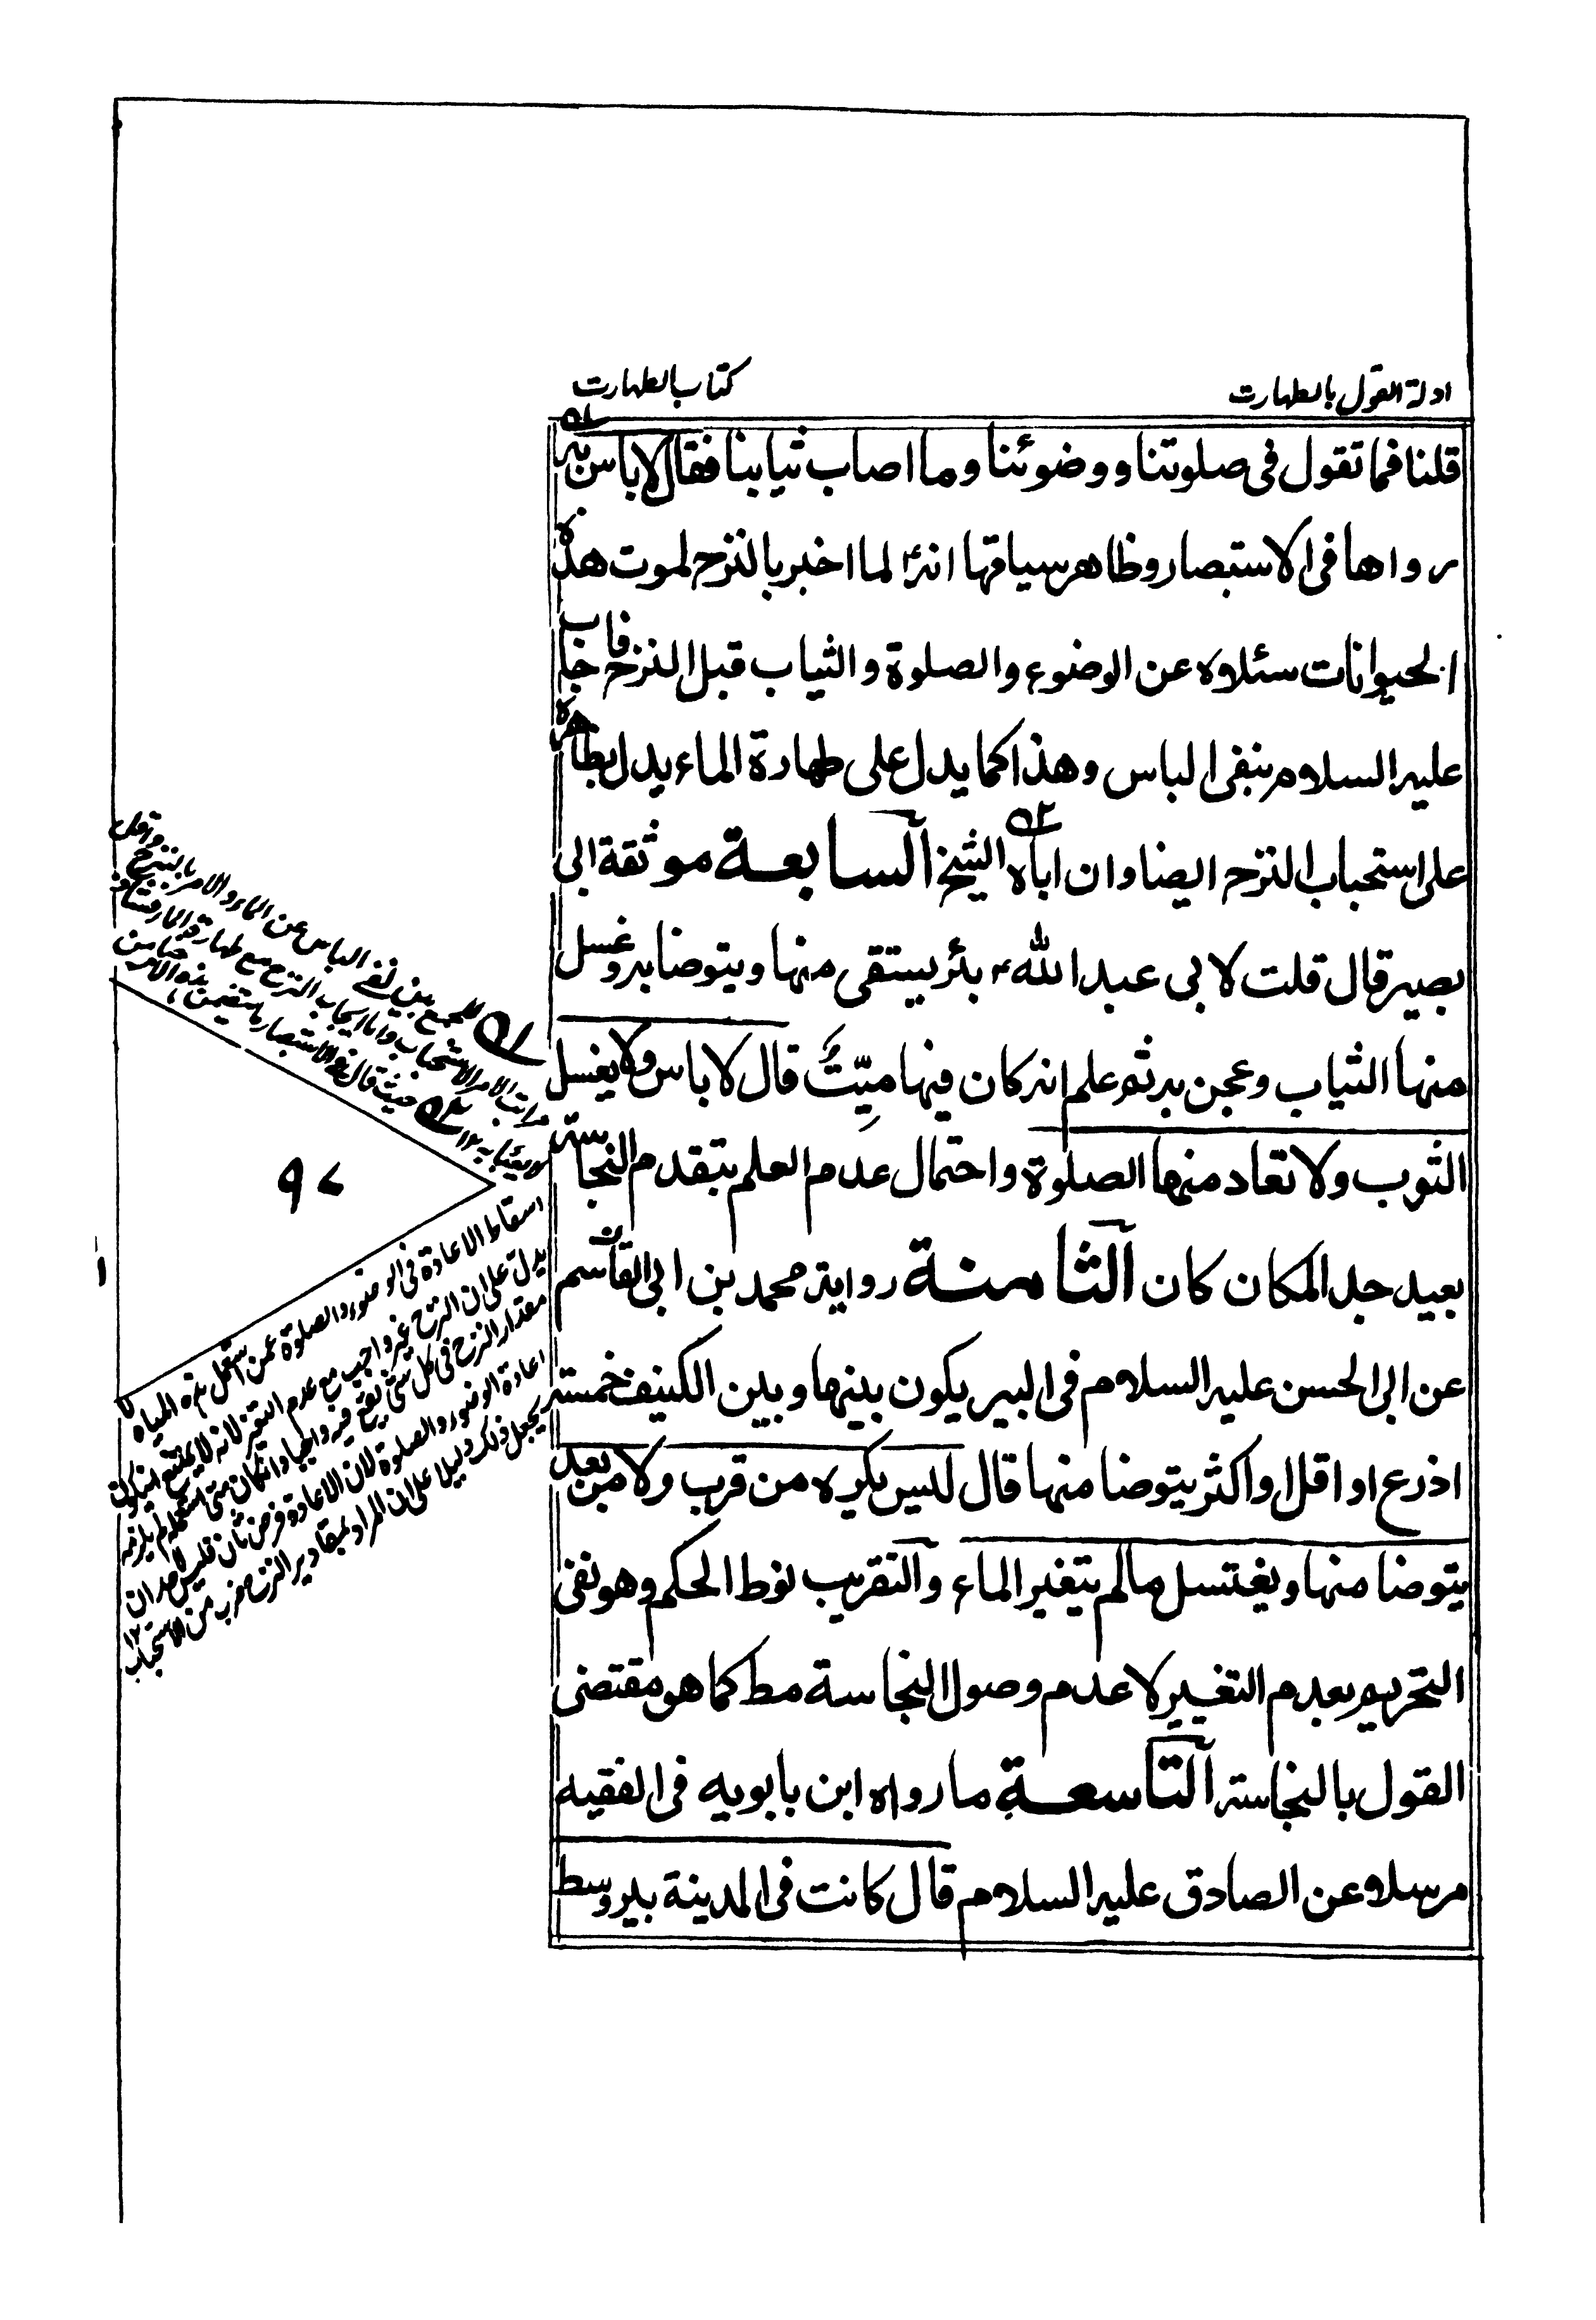 ادلة القول بالطهارت
كتاب الطهارت
قلنا فما تقول فى صلوتنا ووضوئنا وما اصاب ثيابنا فقال لا باس به
رواها فى الاستبصار وظاهر سياقها انه لما اخبر بالنزح لموت هذه
الحيوانات سئلاوه عن الوضوء والصلوة والثياب قبل النزح فاجاب
عليه السلام بنفى الباس وهذا كما يدل على طهارة الماء يدل بظاهره
على استحباب النزح ايضا وان اباه الشيخ السابعة موثقة ابى
بصير قال قلت لابى عبد الله بئر يستقى منها ويتوضا به وغسل
منها الثياب وعجن به ثم علم انه كان فيها ميّت قال لا باس ولا يغسل
الثوب ولا تعاد منها الصلوة واحتمال عدم العلم بتقدم النجاسته
بعيد جدا لمكان كان الثامنة رواية محمد بن ابى القاسم
عن ابى الحسن عليه السلام فى البير يكون بينها وبين الكنيف خمسته
اذرع او اقل او اكثر يتوضا منها قال ليس يكره من قرب ولا من بعد
يتوضا منها ويغتسل ما لم يتغير الماء والتقريب نوط الحكم وهو نفى
التحريم بعدم التغيير لا عدم وصول النجاسة مط كما هو مقتضى
القول بالنجاسته التاسعة ما رواه ابن بابويه فى الفقيه
مرسلا عن الصادق عليه السلام قال كانت فى المدينة بير وسط
للجمع بين نفى الباس عن الماء والامر بالنزح
الاستحباب واما ايجاب النزح مع طهارة الماء
حيث قال فى الاستبصار ما يتضمن
٩٧
اسقاط الاعادة فى الوضوء والصلوة عمن استعمل هذه المياه لا
يدل على ان النزح غير واجب مع عدم التغير لانه لا يمتنع ان يكون
مقدار النزح فى كل شئ يقع فيه واجبا وان كان متى استعمله لم يلزمه
اعادة الوضوء والصلوة لان الاعادة فرض ثان فليس لاحد ان
يجعل ذلك دليلا على ان المراد بمقادير النزح ضرب من الاستحباب ١٢